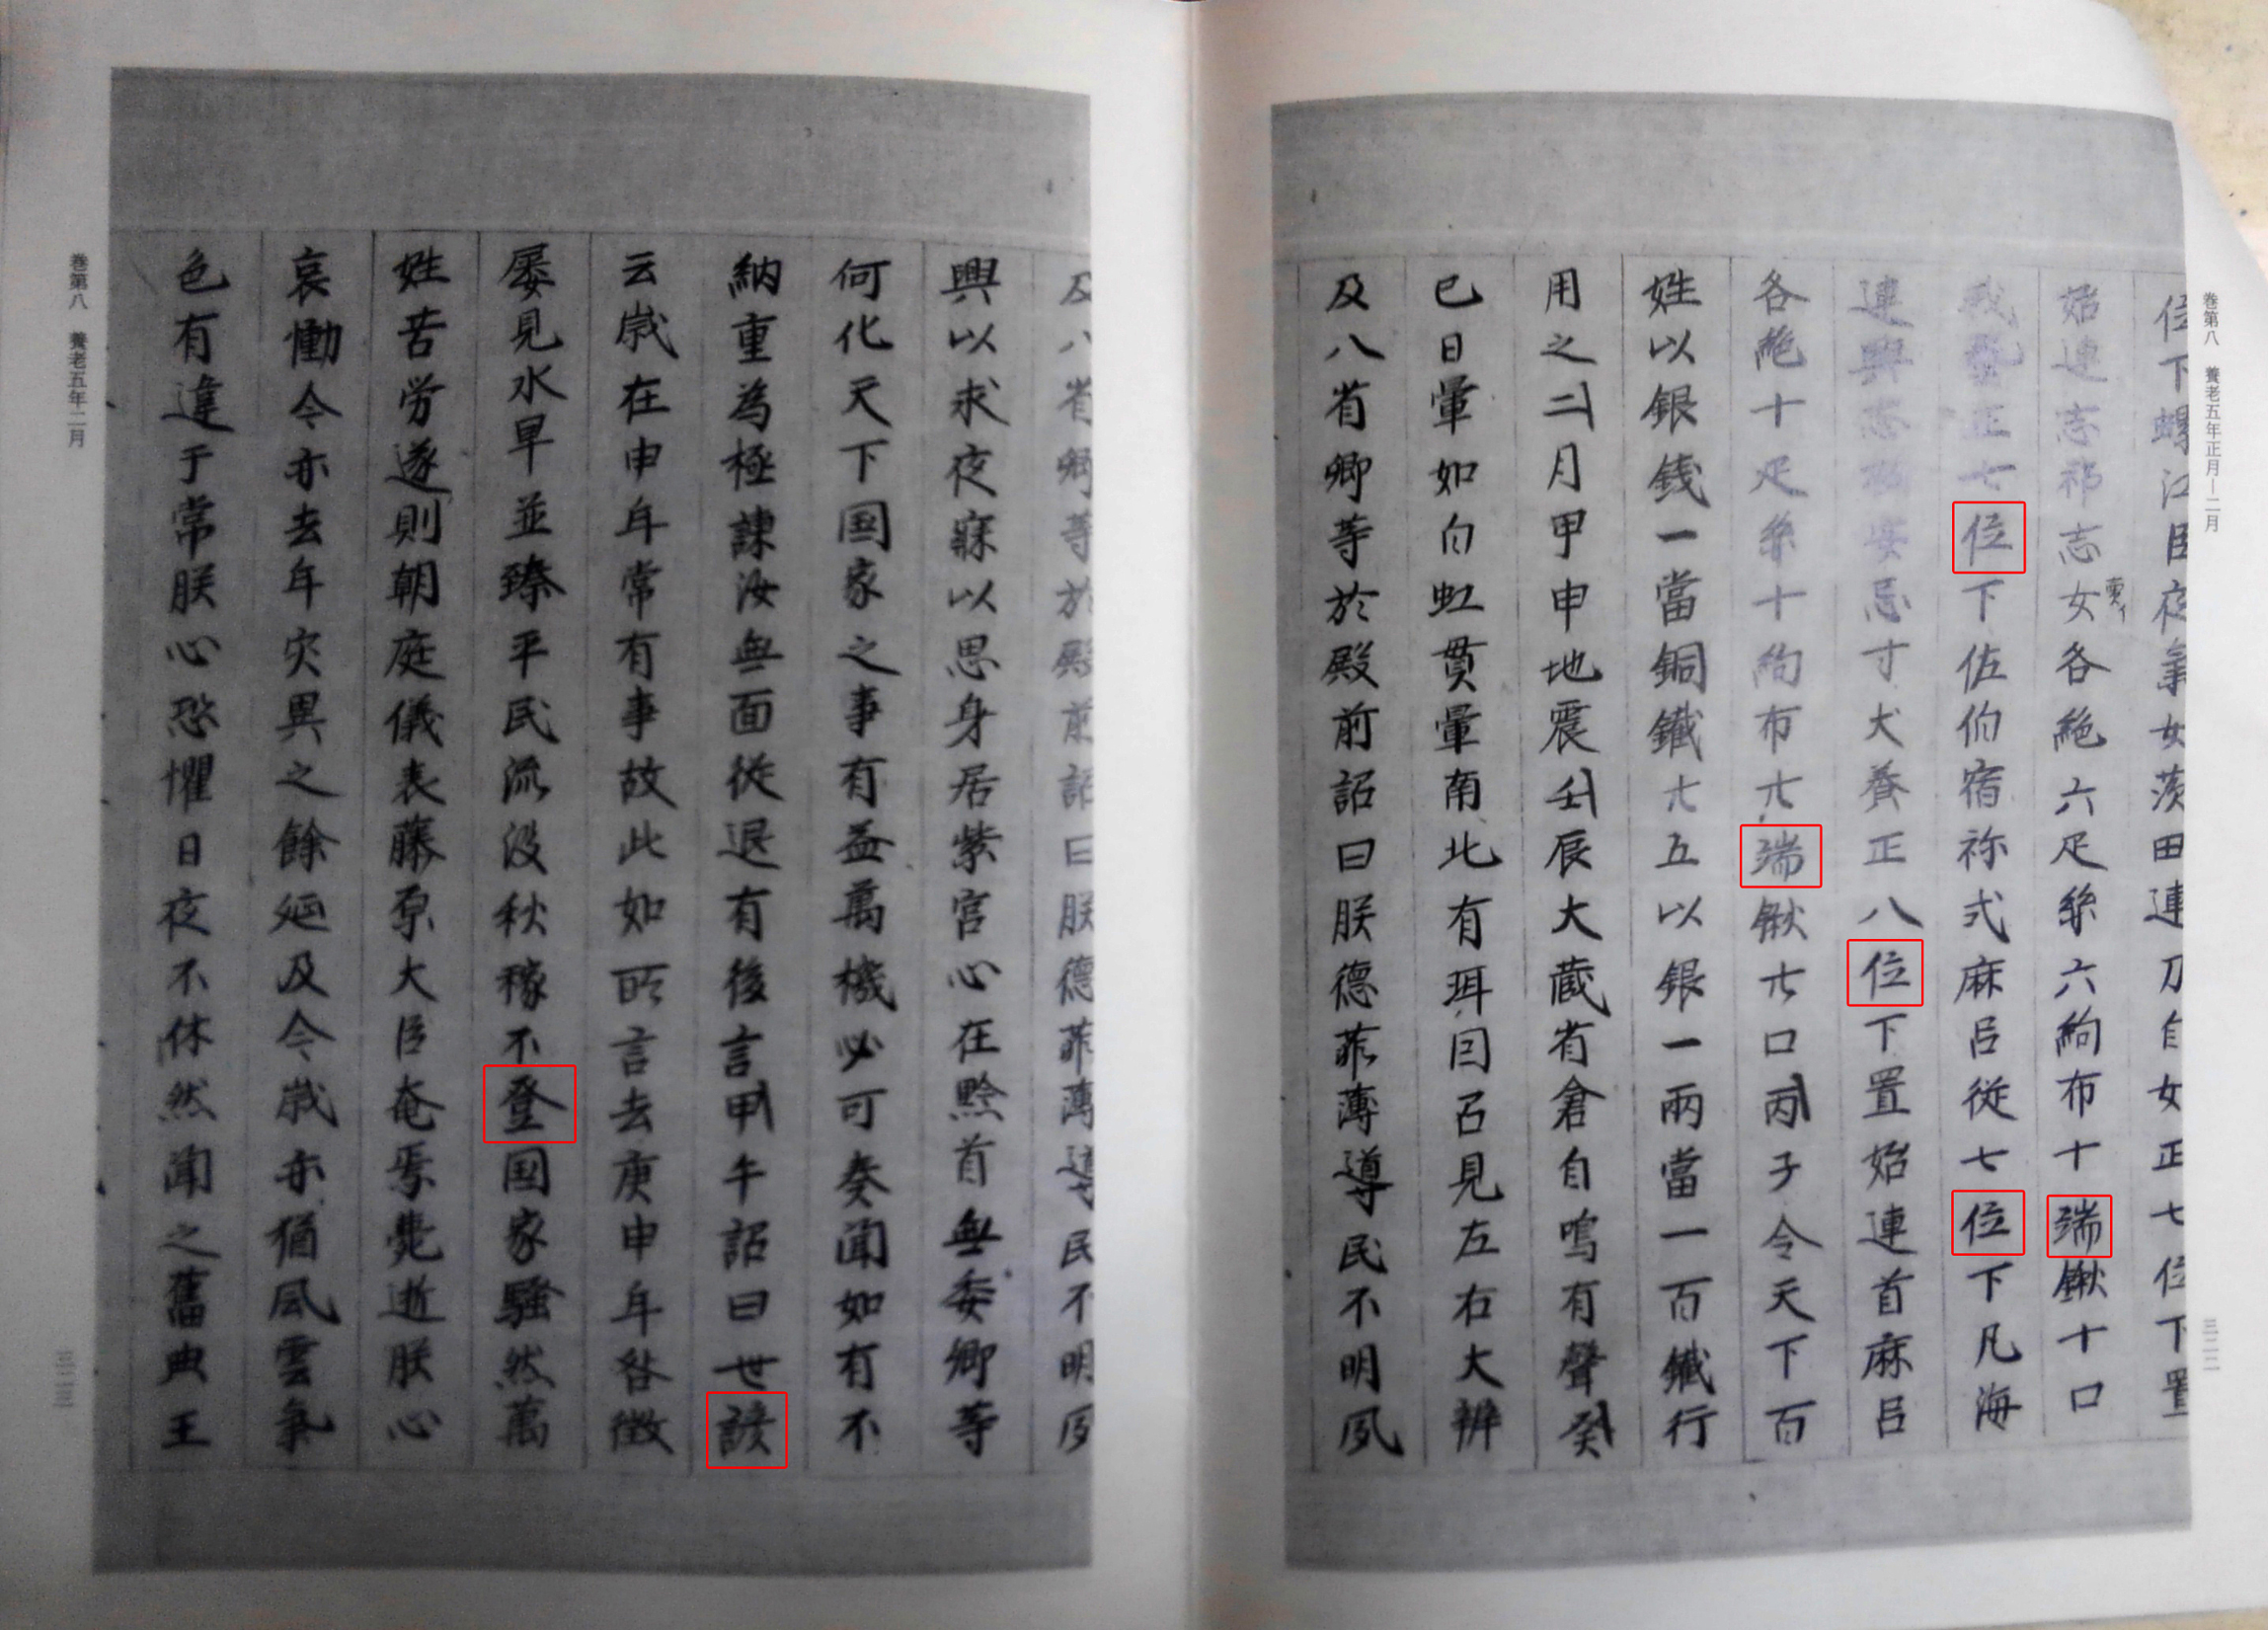 巻第八　養老五年正月—二月
位下螺江臣夜氣女茨田連刀自女正七位下置
始連志祁志女各絁六疋絲六絇布十端鍬十口
賣イ
武藝正七位下佐伯宿祢式麻呂従七位下凡海
連興志安忌寸犬養正八位下置始連首麻呂
各絁十疋絲十絇布廿端鍬廿口丙子令天下百
姓以銀錢一當銅鐵廿五以銀一兩當一百鐵行
用之二月甲申地震壬辰大蔵省倉自鳴有聲癸
巳日暈如白虹貫暈南北有珥因召見左右大辨
及八省卿等於殿前詔曰朕德菲薄導民不明夙
三二二
及八省卿等於殿前詔曰朕德菲薄導民不明夙
興以求夜寐以思身居紫宮心在黔首無委卿等
何化天下国家之事有益萬機必可奏聞如有不
納重為極諫汝無面従退有後言甲午詔曰世諺
云歳在申年常有事故此如所言去庚申年咎徴
屡見水旱並臻平民流没秋稼不登国家騒然萬
姓苦労遂則朝庭儀表藤原大臣奄焉薨逝朕心
哀慟今亦去年灾異之餘延及今歳亦猶風雲氣
色有違于常朕心恐懼日夜不休然聞之舊典王
巻第八　養老五年二月
三二三